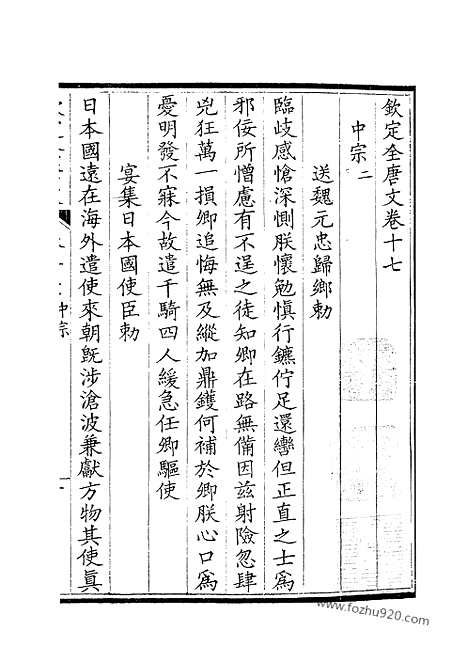 欽定全唐文卷十七
中宗二
送魏元忠歸鄉勅
臨歧感愴深惻朕懷勉慎行鑣佇足還轡但正直之士為
邪佞所憎慮有不逞之徒知卿在路無備因茲射險忽肆
兇狂萬一損卿追悔無及縱加鼎鑊何補於卿朕心口為
憂明發不寐今故遣千騎四人緩急任卿驅使
宴集日本國使臣勅
日本國遠在海外遣使來朝既涉滄波兼獻方物其使眞
中宗
www.fozhu920.com